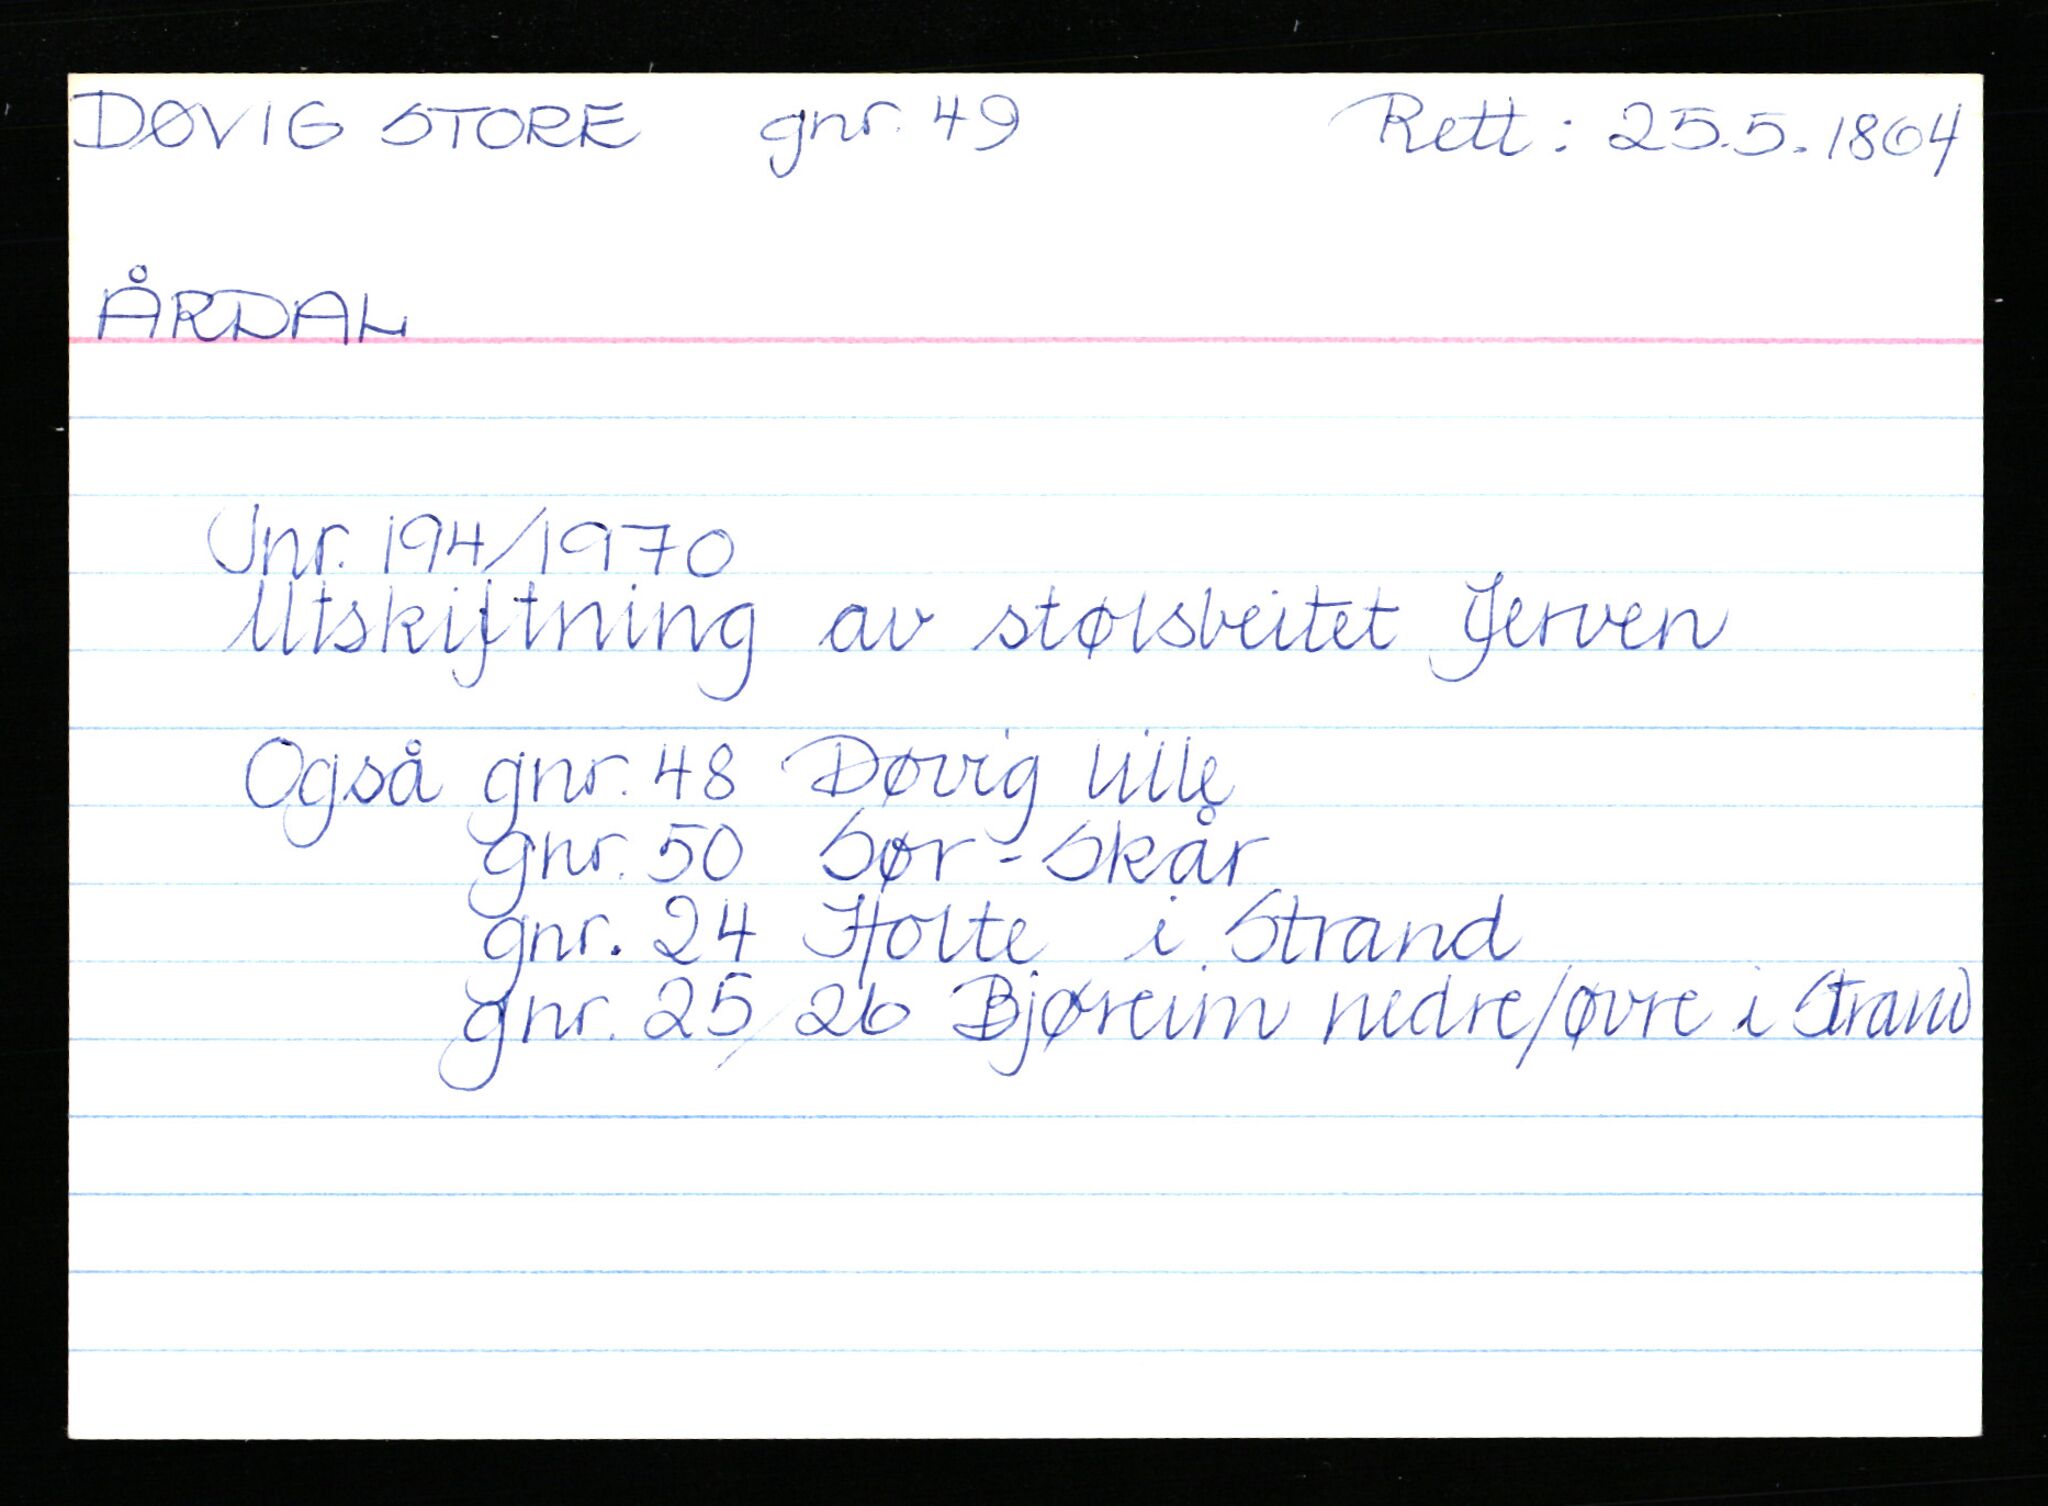 DØVIG STORE gnr. 49 Rett: 25.5.1864
ÅRDAL
Jnr. 194/1970
Utskiftning av stølsbeitet Jerven
Også gnr. 48 Døvig lille
gnr. 50 Sør-Skår
gnr. 24 Holte i Strand
gnr. 25/26 Bjøreim nedre/øvre i Strand